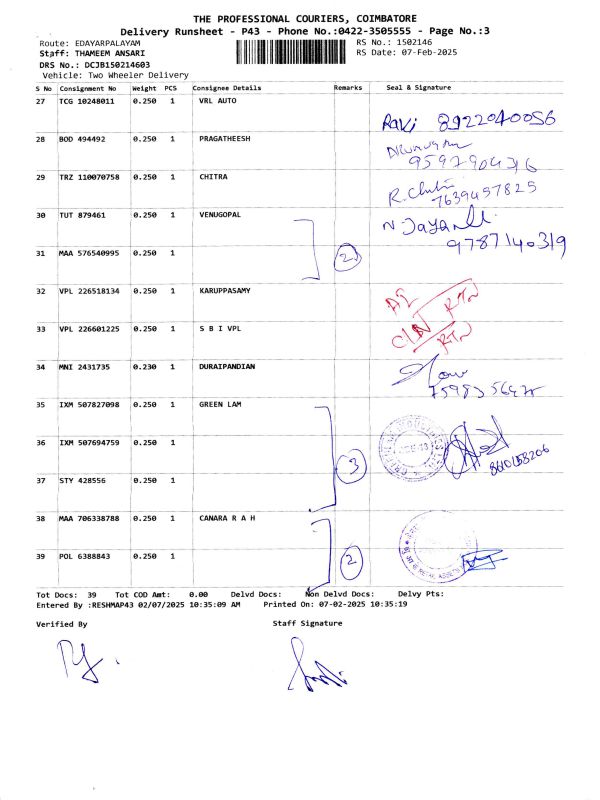 THE PROFESSIONAL COURIERS, COIMBATORE
Delivery Runsheet - P43 - Phone No.:0422-3505555 - Page No.:3
Route: EDAYARPALAYAM RS No.: 1502146
Staff: THAMEEM ANSARI RS Date: 07-Feb-2025
DRS No.: DCJB150214603
Vehicle: Two Wheeler Delivery
S No Consignment No Weight PCS Consignee Details Remarks Seal & Signature
27 TCG 10248011 0.250 1 VRL AUTO
Ravi 8922040056
28 BOD 494492 0.250 1 PRAGATHEESH
29 TRZ 110070758 0.250 1 CHITRA
R. Chitra 7639457825
30 TUT 879461 0.250 1 VENUGOPAL
9787140319
31 MAA 576540995 0.250 1 2
32 VPL 226518134 0.250 1 KARUPPASAMY RTN
33 VPL 226601225 0.250 1 S B I VPL RTN
34 MNI 2431735 0.230 1 DURAIPANDIAN
35 IXM 507827098 0.250 1 GREEN LAM
36 IXM 507694759 0.250 1 3
37 STY 428556 0.250 1
38 MAA 706338788 0.250 1 CANARA R A H
39 POL 6388843 0.250 1 2
Tot Docs: 39 Tot COD Amt: 0.00 Delvd Docs: Non Delvd Docs: Delvy Pts:
Entered By :RESHMAP43 02/07/2025 10:35:09 AM Printed On: 07-02-2025 10:35:19
Verified By Staff Signature